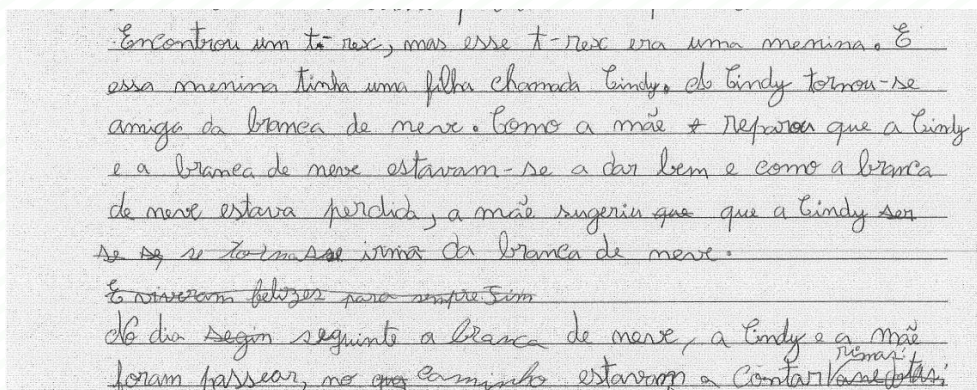 Encontrou um t-rex, mas esse t-rex era uma menina. E
essa menina tinha uma filha chamada Cindy. A Cindy tornou-se
amiga da branca de neve. Como a mãe reparou que a Cindy
e a branca de neve estavam-se a dar bem e como a branca
de neve estava perdida, a mãe sugeriu que que a Cindy ser
se se se tornasse irmã da branca de neve.
E viveram felizes para sempre Fim
No dia segin seguinte a branca de neve, a Cindy e a mãe
rimas
foram passear, no caminho estavam a contar